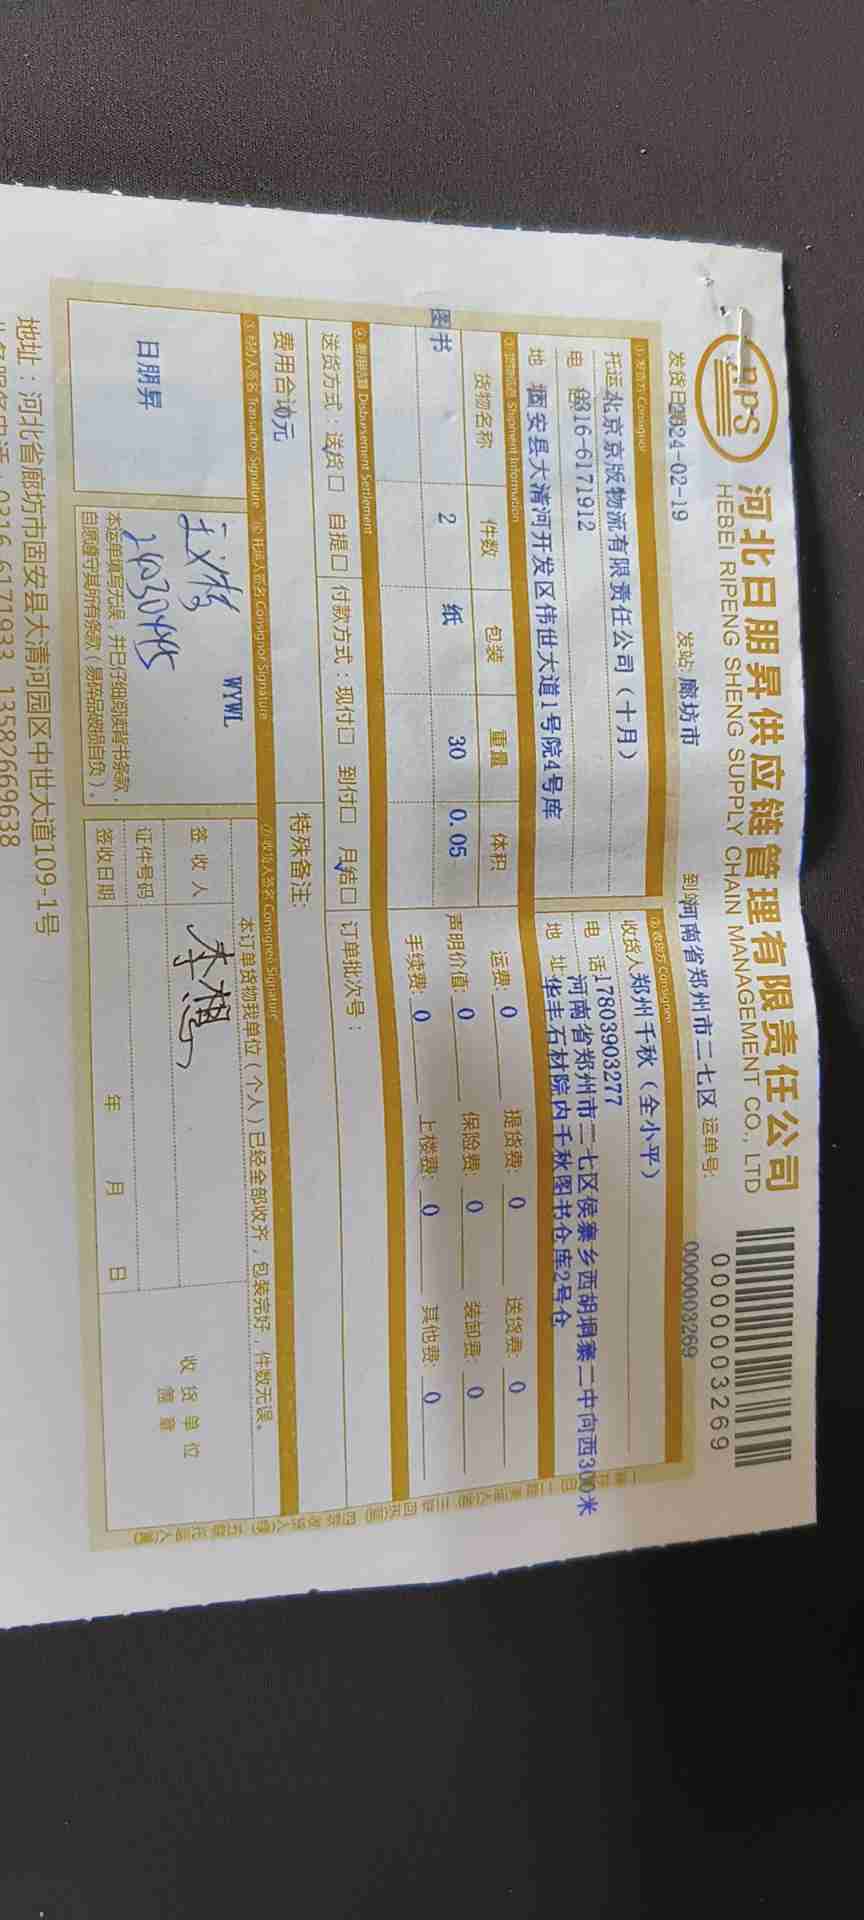 河北日朋昇供应链管理有限责任公司
HEBEI RIPENG SHENG SUPPLY CHAIN MANAGEMENT CO., LTD
0000003269
发货日 2024-02-19 发站: 廊坊市 到 河南省郑州市二七区 运单号: 0000003269
① 发货方 Consignor
托运 北京京版物流有限责任公司（十月）
电 0316-6171912
地 固安县大清河开发区伟世大道1号院4号库
② 收货方 Consignee
收货人 郑州千秋（全小平）
电 话 17803903277
地 址 河南省郑州市二七区侯寨乡西胡垌寨二中向西300米
华丰石材院内千秋图书仓库2号仓
③ 货物信息 Shipment Information
货物名称 件数 包装 重量 体积
图书 2 纸 30 0.05
运费: 0 提货费: 0 送货费: 0
声明价值: 0 保险费: 0 装卸费: 0
手续费: 0 上楼费: 0 其他费: 0
④ 费用结算 Disbursement Settlement
送货方式：送货□ 自提□ 付款方式：现付□ 到付□ 月结□ 订单批次号：
费用合 0元 特殊备注:
⑤ 经办人签名 Transactor Signature
日朋昇
⑥ 托运人签名 Consignor Signature
WYWL
本运单填写无误，并已仔细阅读背书条款，
自愿遵守其所有条款（易碎品破损自负）。
⑦ 收货人签名 Consignee Signature
本订单货物我单位（个人）已经全部收齐，包装完好，件数无误。
签 收 人 李想
证件号码:
签收日期 年 月 日
收 货 单 位
签 章
地址：河北省廊坊市固安县大清河园区中世大道109-1号
0316-6171933 13582669638